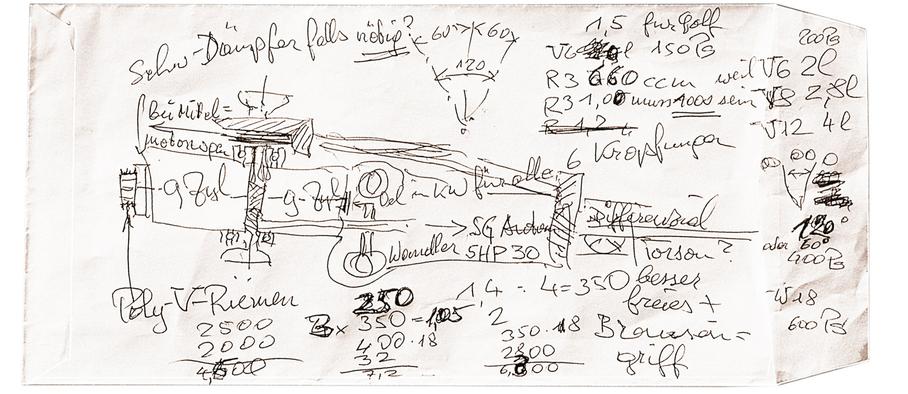 Schw-Dämpfer falls nötig?
60° 60°
120
1,5 für Golf
V6 150 PS
R3 660 ccm weil V6 2l
R3 1,00 muss 1000 sein V8 2,8l
R 1,2
V12 4l
200 PS
bei Mittel=
motorsper
6 Kröpfungen
9 Zyl
9-Zyl
Oel - KW für alle
Differenzial
SG Andern
Wandler 5HP30
Torson?
besser
freies +
Bremsen=
griff
120°
oder 60°
400 PS
W18
600 PS
Poly-V-Riemen
2500
2000
4500
250
350 =
400 · 18
32
7,2
1,4 · 4 = 350
2
350 · 18
2800
6,300